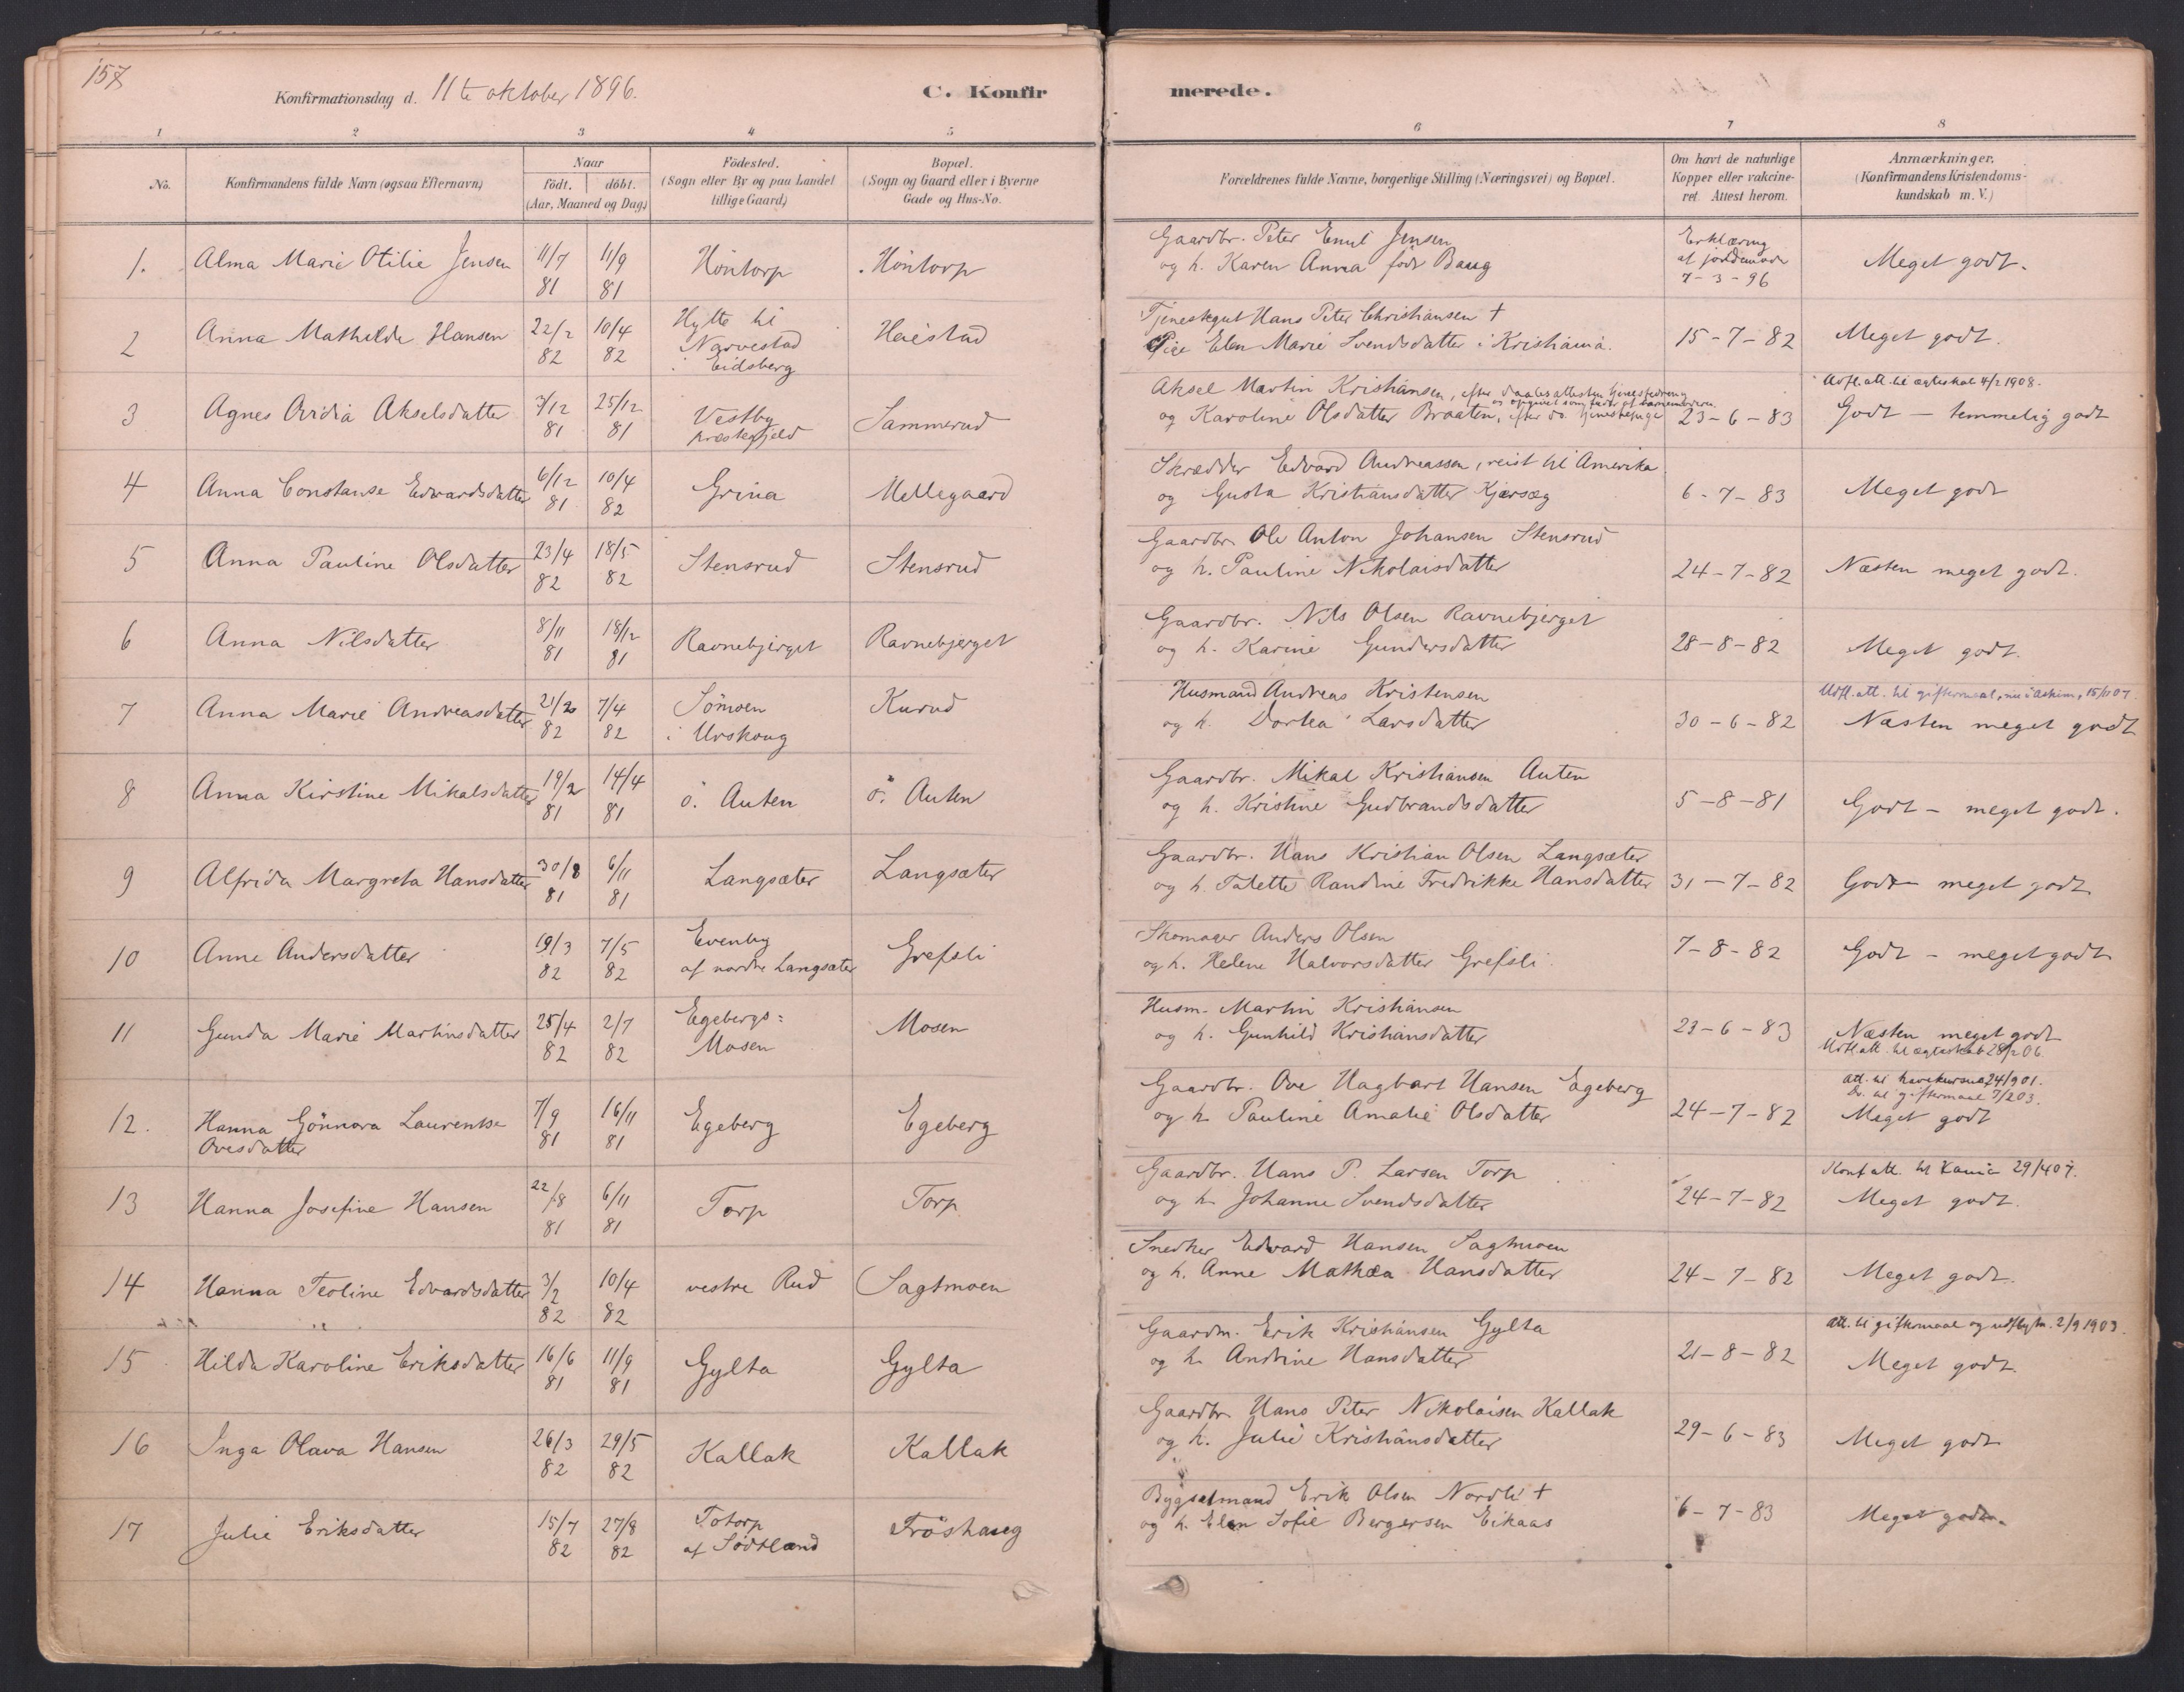 157
Konfirmationsdag d. 11te oktober 1896.
C. Konfirmerede.
1 2 3 4 5 6 7 8
No.
Konfirmandens fulde Navn (ogsaa Efternavn)
Naar
födt. döbt.
(Aar, Maaned og Dag)
Födested.
(Sogn eller By og paa Landet
tillige Gaard)
Bopæl.
(Sogn og Gaard eller i Byerne
Gade og Hus-No.
Forældrenes fulde Navne, borgerlige Stilling (Næringsvei) og Bopæl.
Om havt de naturlige
Kopper eller vakcine-
ret. Attest herom.
Anmærkninger.
(Konfirmandens Kristendoms-
kundskab m. V.)
1. Alma Marie Otilie Jensen 11/7 81 11/9 81 Höntorp Höntorp
Gaardbr. Peter Emil Jensen
og h. Karen Anna født Baug
Erklæring
af jordemoder
7-3-96
Meget godt.
2 Anna Mathilde Hansen 22/2 82 10/4 82
Hytte til
Narvestad
i Eidsberg
Haiestad
Tjenestegut Hans Peter Christiansen †
Pige Elen Marie Svendsdatter i Kristiania.
15-7-82 Meget godt.
3 Agnes Ovidia Akselsdatter 3/12 81 25/12 81
Vestby
præstegjeld
Sammerud
Aksel Martin Kristiansen, efter daabsattesten
og Karoline Olsdatter Braaten, efter do. tjenestepige
23-6-83
Udfl. att. til ægteskab 4/2 1908.
Godt – temmelig godt
4 Anna Constanse Edvardsdatter 6/12 81 10/4 82 Grina Mellegaard
Skrædder Edvard Andreassen, reist til Amerika
og Gusta Kristiansdatter Kjærsæg
6-7-83 Meget godt
5 Anna Pauline Olsdatter 23/4 82 18/5 82 Stensrud Stensrud
Gaardbr. Ole Anton Johansen Stensrud
og h. Pauline Nikolaisdatter
24-7-82 Næsten meget godt.
6 Anna Nilsdatter 8/11 81 18/12 81 Ravnebjerget Ravnebjerget
Gaardbr. Nils Olsen Ravnebjerget
og h. Karine Gundersdatter
28-8-82 Meget godt.
7 Anna Marie Andreasdatter 21/2 82 7/4 82
Sömoen
i Urskoug
Kurud
Husmand Andreas Kristensen
og h. Dortea Larsdatter
30-6-82
Udfl. att. til giftermaal, nu i Askim,
Næsten meget godt
8 Anna Kirstine Mikalsdatter 19/2 81 14/4 81 ö. Auten ö. Auten
Gaardbr. Mikal Kristiansen Auten
og h. Kristine Gudbrandsdatter
5-8-81 Godt – meget godt.
9 Alfrida Margreta Hansdatter 30/8 81 6/11 81 Langsæter Langsæter
Gaardbr. Hans Kristian Olsen Langsæter
og h. Talette Randine Fredrikke Hansdatter
31-7-82 Godt – meget godt
10 Anne Andersdatter 19/3 82 7/5 82
Evenby
af nordre Langsæter
Grefsli
Skomager Anders Olsen
og h. Helene Halvorsdatter Grefsli
7-8-82 Godt – meget godt
11 Gunda Marie Martinsdatter 25/4 82 2/7 82
Egebergs=
Mosen
Mosen
Husm. Martin Kristiansen
og h. Gunhild Kristiansdatter
23-6-83
Næsten meget godt
Udfl att. til ægteskab 28/2 06.
12. Hanna Gönnora Laurentse
Ovesdatter
7/9 81 16/11 81 Egeberg Egeberg
Gaardbr. Ove Hagbart Hansen Egeberg
og h. Pauline Amalie Olsdatter
24-7-82
Att. til havekursus 24/9 01.
Do. til giftermaal 7/2 03.
Meget godt
13 Hanna Josefine Hansen 22/8 81 6/11 81 Torp Torp
Gaardbr. Hans P. Larsen Torp
og h. Johanne Svendsdatter
24-7-82
Konf att. til Kania 29/4 07.
Meget godt.
14 Hanna Teoline Edvardsdatter 3/2 82 10/4 82 vestre Rud Sagtmoen
Snedker Edvard Hansen Sagtmoen
og h. Anne Mathea Hansdatter
24-7-82 Meget godt.
15 Hilda Karoline Eriksdatter 16/6 81 11/9 81 Gylta Gylta
Gaardm. Erik Kristiansen Gylta
og h. Andrine Hansdatter
21-8-82
Att. til giftermaal og udflytn. 2/9 1903.
Meget godt.
16 Inga Olava Hansen 26/3 82 29/5 82 Kallak Kallak
Gaardbr. Hans Peter Nikolaisen Kallak
og h. Julie Kristiansdatter
29-6-83 Meget godt
17 Julie Eriksdatter 15/7 82 27/8 82
Totorp
af Södtland
Fröshaug
Bygselmand Erik Olsen Nordli †
og h. Elen Sofie Bergersen Eikaas
6-7-83 Meget godt.